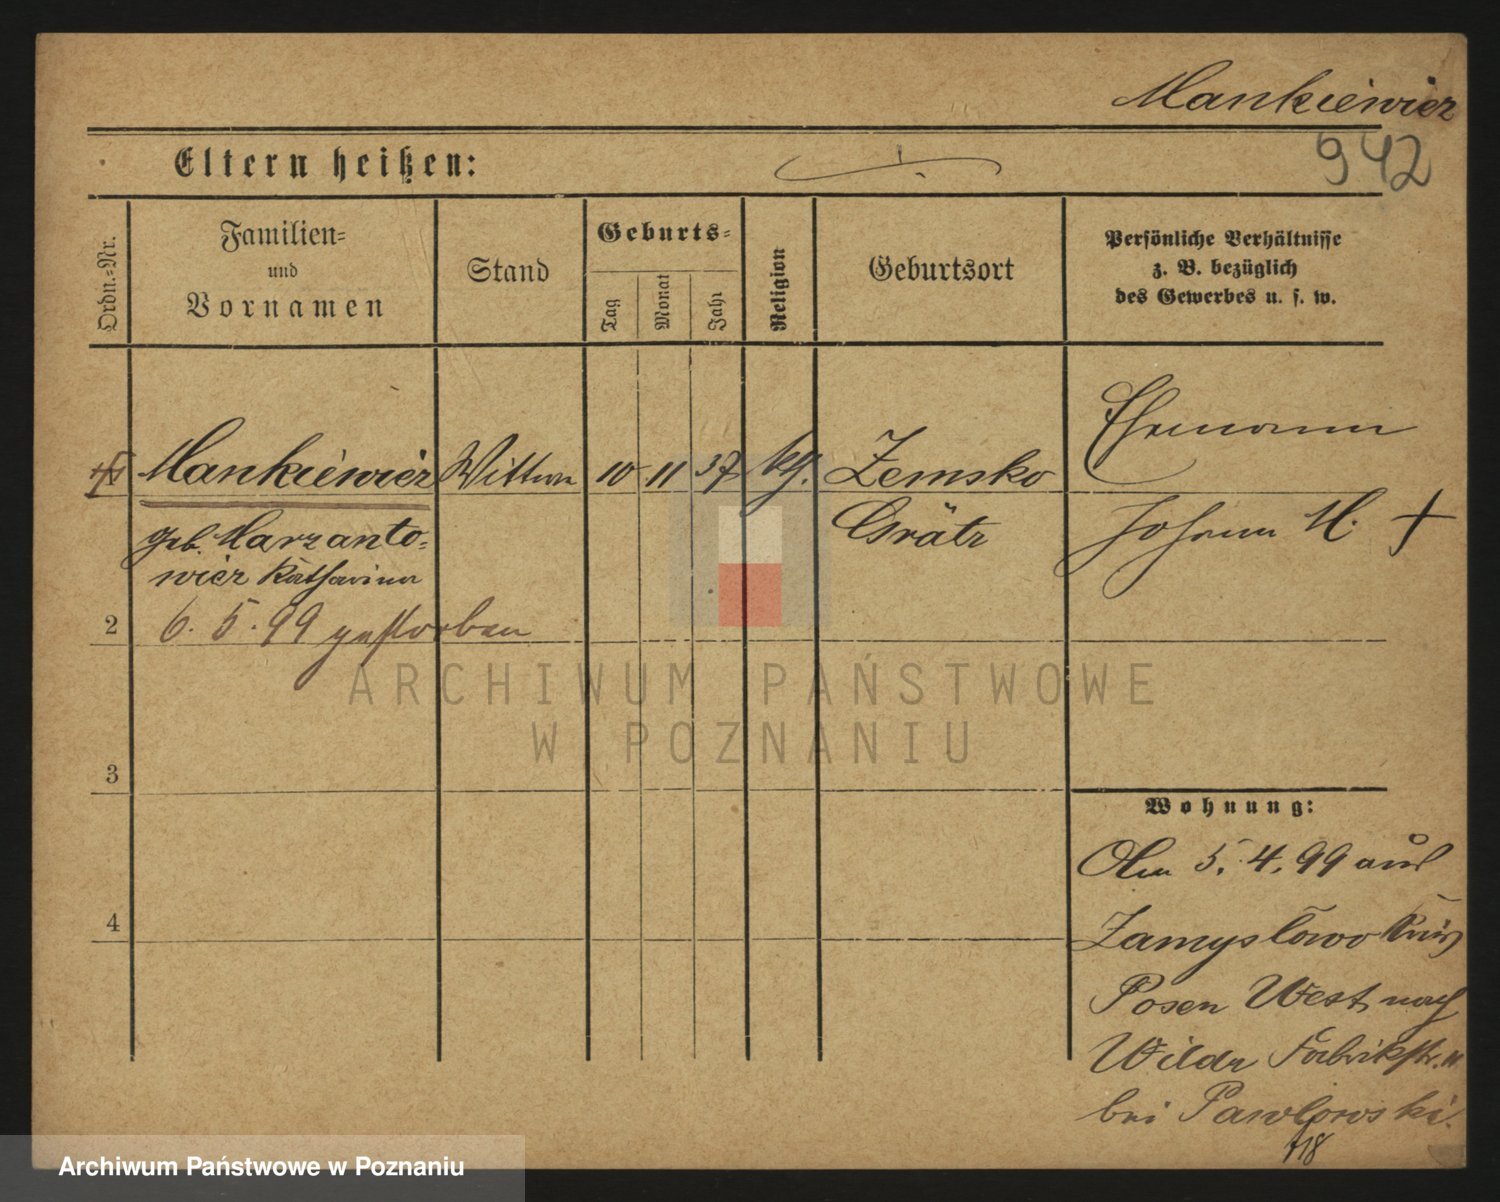 Mankiewicz
942
Eltern heißen:
Ordn.-Nr.
Familien-
und
Vornamen
Stand
Geburts-
Tag
Monat
Jahr
Religion
Geburtsort
Persönliche Verhältnisse
z. B. bezüglich
des Gewerbes u. s. w.
Mankiewicz Wittwe 10 11 37 kg. Zemsko Ehemann
geb. Marzanto-
wicz Katharina
Grätz
Johann M. +
2
6. 5. 99 gestorben
3
Wohnung:
Am 5. 4. 99 aus
4
Zamyslowo Kreis
Posen West nach
Wilda Fabrikstr.
bei Pawlowski.
718
ARCHIWUM PAŃSTWOWE
W POZNANIU
Archiwum Państwowe w Poznaniu